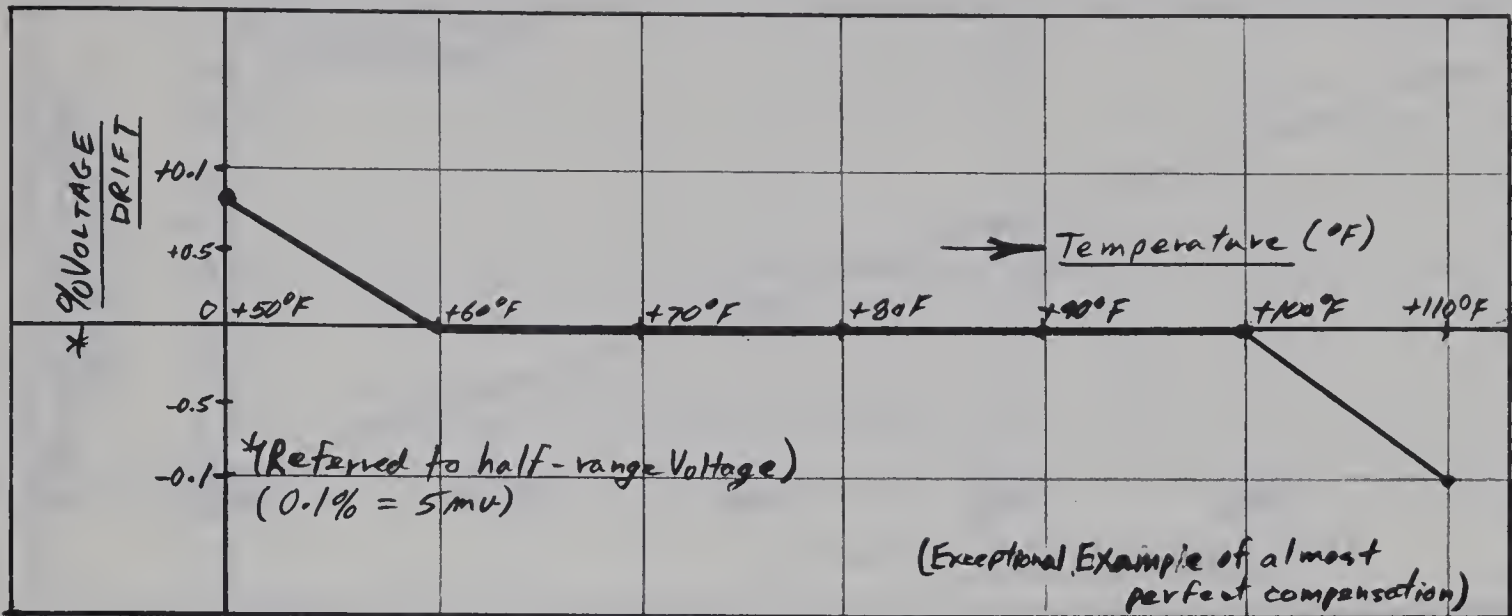 * % VOLTAGE
DRIFT
+0.1
+0.5
0
-0.5
-0.1
+50°F
+60°F
+70°F
+80F
+90°F
+100°F
+110°F
Temperature (°F)
*(Referred to half-range Voltage)
(0.1% = 5mv)
(Exceptional Example of almost
perfect compensation)